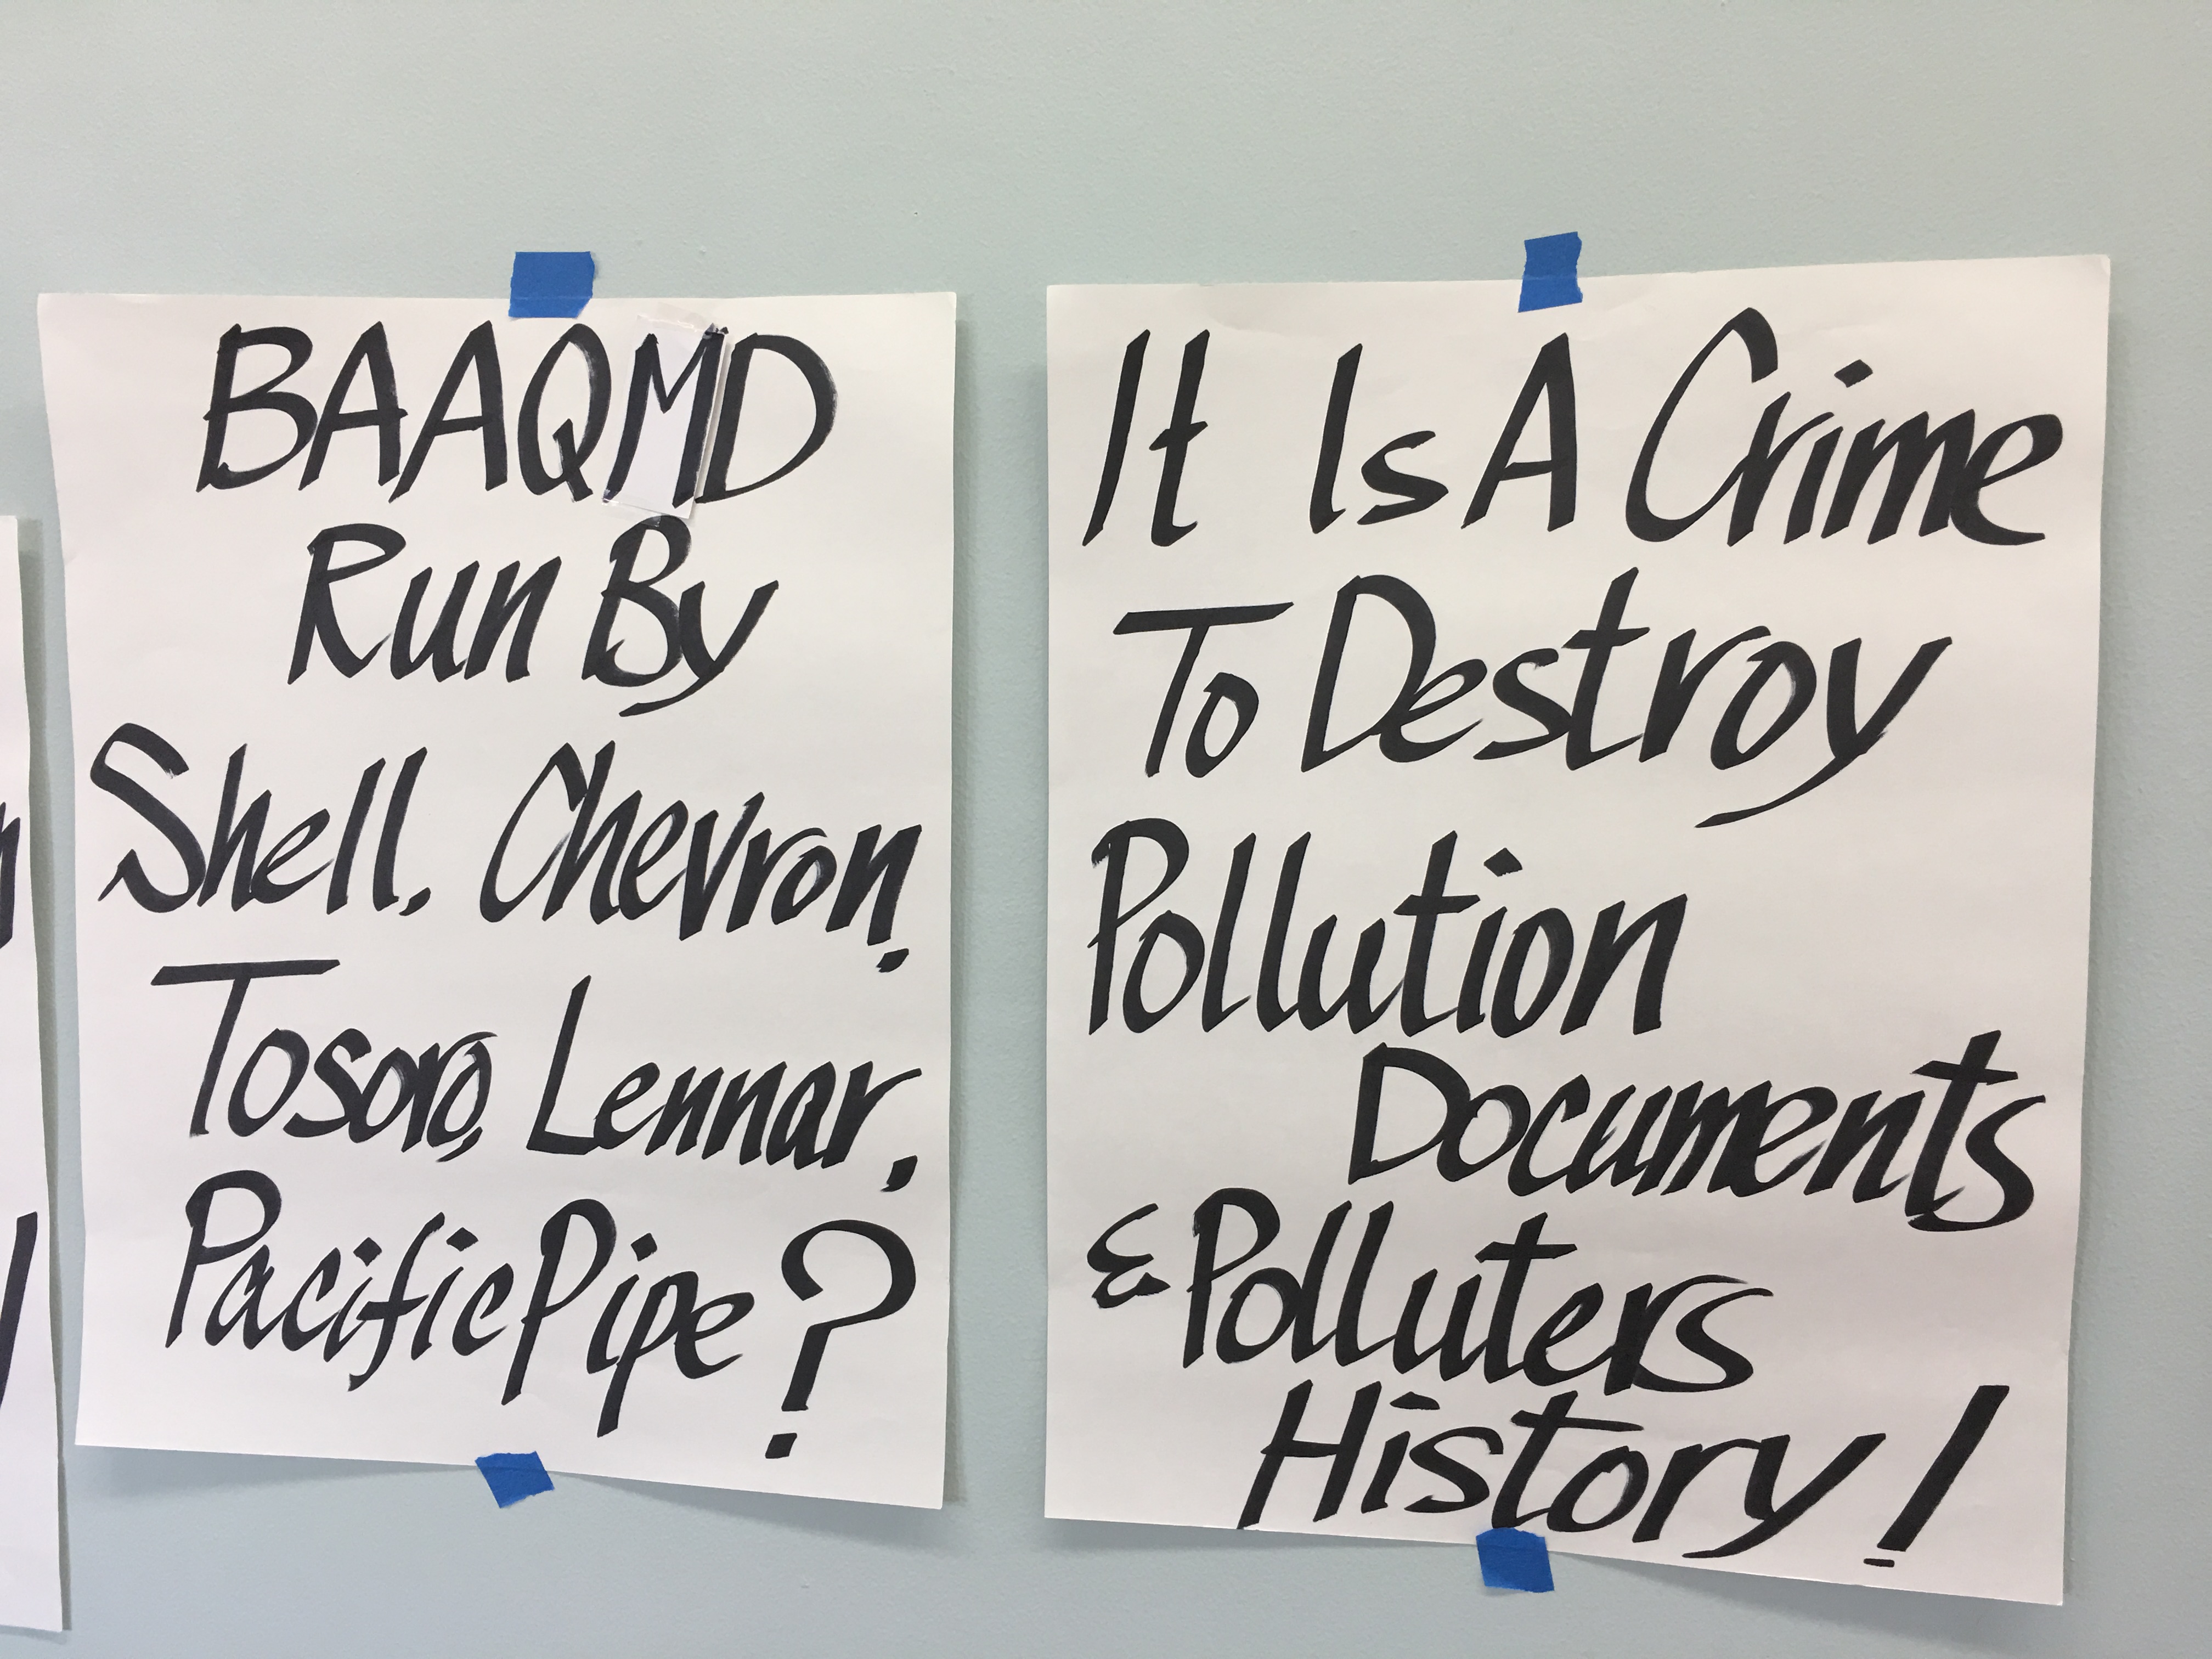 BAAQMD
Run By
Shell, Chevron,
Tosoro, Lennar,
Pacific Pipe?
It Is A Crime
To Destroy
Pollution
Documents
& Polluters
History!